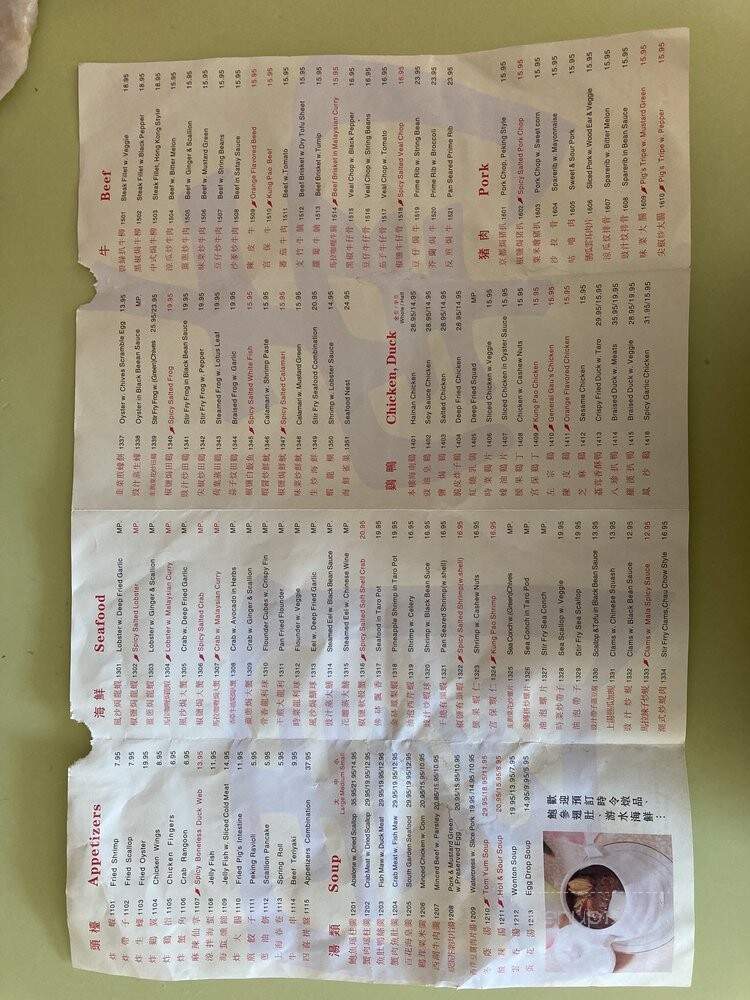 頭檯 Appetizers
炸蝦 1101 Fried Shrimp 7.95
炸帶子 1102 Fried Scallop 7.95
炸生蠔 1103 Fried Oyster 19.95
炸雞翼 1104 Chicken Wings 8.95
炸雞指 1105 Chicken Fingers 6.95
炸蟹角 1106 Crab Rangoon 6.95
1107 Spicy Boneless Duck Web 13.95
涼拌海蜇 1108 Jelly Fish 11.95
1109 Jelly Fish w. Sliced Cold Meat 14.95
炸大腸 1110 Fried Pig's Intestine 11.95
煎餃子 1111 Peking Ravioli 5.95
蔥油餅 1112 Scallion Pancake 5.95
上海春卷 1113 Spring Roll 5.95
牛串 1114 Beef Teriyaki 9.95
四喜拼盤 1115 Appetizers Combination 37.95
湯類 Soup 大 中 小 Large Medium Small
1201 Abalone w. Dried Scallop 35.95/21.95/14.95
蟹肉瑤柱羹 1202 Crab Meat w. Dried Scallop 29.95/19.95/12.95
魚肚鴨絲羹 1203 Duck w. Fish Maw 29.95/19.95/12.95
蟹肉魚肚羹 1204 Crab Meat w. Fish Maw 29.95/19.95/12.95
百花海皇羹 1205 South Garden Seafood 29.95/19.95/12.95
雞茸粟米羹 1206 Minced Chicken w. Corn 20.95/15.95/10.95
西湖牛肉羹 1207 Minced Beef w. Parsley 20.95/15.95/10.95
1208 Pork & Mustard Green w. Preserved Egg 20.95/15.95/10.95
1209 Watercress w. Slice Pork 19.95/14.95/10.95
冬蔭湯 1210 Tom Yum Soup 29.95/18.95/11.95
酸辣湯 1211 Hot & Sour Soup 20.95/15.95/8.95
雲吞湯 1212 Wonton Soup 19.95/13.95/7.95
蛋花湯 1213 Egg Drop Soup 14.95/9.95/5.95
歡迎預訂時令燉品、
鮑參翅肚、游水海鮮…
海鮮 Seafood
風沙焗龍蝦 1301 Lobster w. Deep Fried Garlic MP.
椒鹽焗龍蝦 1302 Spicy Salted Lobster MP.
薑蔥焗龍蝦 1303 Lobster w. Ginger & Scallion MP.
1304 Lobster w. Malaysian Curry MP.
風沙焗大蟹 1305 Crab w. Deep Fried Garlic MP.
椒鹽焗大蟹 1306 Spicy Salted Crab MP.
1307 Crab w. Malaysian Curry MP.
1308 Crab w. Avocado in Herbs MP.
薑蔥焗大蟹 1309 Crab w. Ginger & Scallion MP.
骨香龍利球 1310 Flounder Cubes w. Crispy Fin MP.
干煎大龍利 1311 Pan Fried Flounder MP.
時菜龍利球 1312 Flounder w. Veggie MP.
風沙焗鱔球 1313 Eel w. Deep Fried Garlic MP.
豉汁蒸大鱔 1314 Steamed Eel w. Black Bean Sauce MP.
花雕蒸大鱔 1315 Steamed Eel w. Chinese Wine MP.
椒鹽軟殼蟹 1316 Spicy Salted Soft Shell Crab 20.95
佛砵飄香 1317 Seafood in Taro Pot 19.95
1318 Pineapple Shrimp in Taro Pot 19.95
油泡西芹蝦 1319 Shrimp w. Celery 16.95
豉汁炒蝦球 1320 Shrimp w. Black Bean Sauce 16.95
干燒有頭蝦 1321 Pan Seared Shrimp(w.shell) 16.95
椒鹽有頭蝦 1322 Spicy Salted Shrimp(w.shell) 16.95
腰果蝦仁 1323 Shrimp w. Cashew Nuts 16.95
宮保蝦仁 1324 Kung Pao Shrimp 16.95
1325 Sea Conch w.(Green)Chives MP.
1326 Sea Conch in Taro Pod MP.
油泡螺片 1327 Stir Fry Sea Conch MP.
時菜炒帶子 1328 Sea Scallop w. Veggie 19.95
油泡帶子 1329 Stir Fry Sea Scallop 19.95
1330 Scallop &Tofu in Black Bean Sauce 13.95
1331 Clams w. Chinese Squash 13.95
豉汁炒蜆 1332 Clams w. Black Bean Sauce 12.95
1333 Clams w. Mala Spicy Sauce 12.95
潮式炒蜆肉 1334 Stir Fry Clams,Chau Chow Style 16.95
韭菜煎蠔餅 1337 Oyster w. Chives Scramble Egg 13.95
豉汁蒸生蠔 1338 Oyster in Black Bean Sauce MP.
1339 Stir Fry Frog w. (Green)Chives 25.95/23.95
椒鹽焗田雞 1340 Spicy Salted Frog 19.95
豉汁炒田雞 1341 Stir Fry Frog in Black Bean Sauce 19.95
尖椒炒田雞 1342 Stir Fry Frog w. Pepper 19.95
荷葉蒸田雞 1343 Steamed Frog w. Lotus Leaf 19.95
蒜子炆田雞 1344 Braised Frog w. Garlic 19.95
椒鹽白飯魚 1345 Spicy Salted White Fish 15.95
蝦醬炒鮮魷 1346 Calamari w. Shrimp Paste 15.95
椒鹽焗鮮魷 1347 Spicy Salted Calamari 15.95
味菜炒鮮魷 1348 Calamari w. Mustard Green 16.95
生炒海鮮 1349 Stir Fry Seafood Combination 20.95
蝦龍糊 1350 Shrimp w. Lobster Sauce 14.95
海鮮雀巢 1351 Seafood Nest 24.95
雞 鴨 Chicken, Duck 全隻/半隻 Whole / Half
水晶海南雞 1401 Hainan Chicken 28.95/14.95
豉油皇雞 1402 Soy Sauce Chicken 28.95/14.95
鹽焗雞 1403 Salted Chicken 28.95/14.95
脆皮炸子雞 1404 Deep Fried Chicken 28.95/14.95
紅燒乳鴿 1405 Deep Fried Squad MP.
時菜雞片 1406 Sliced Chicken w. Veggie 15.95
蠔油雞片 1407 Sliced Chicken in Oyster Sauce 15.95
腰果雞丁 1408 Chicken w. Cashew Nuts 15.95
宮保雞丁 1409 Kung Pao Chicken 15.95
左宗雞 1410 General Gau's Chicken 15.95
陳皮雞 1411 Orange Flavored Chicken 15.95
芝麻雞 1412 Sesame Chicken 15.95
荔茸香酥鴨 1413 Crispy Fried Duck w. Taro 29.95/15.95
八珍扒鴨 1414 Braised Duck w. Meats 35.95/19.95
羅漢扒鴨 1415 Braised Duck w. Veggie 28.95/19.95
風沙雞 1416 Spicy Garlic Chicken 31.95/15.95
牛 Beef
碧綠扒牛柳 1501 Steak Fillet w. Veggie 18.95
黑椒焗牛柳 1502 Steak Fillet w. Black Pepper 18.95
中式焗牛柳 1503 Steak Fillet, Hong Kong Style 18.95
涼瓜炒牛肉 1504 Beef w. Bitter Melon 15.95
薑蔥炒牛肉 1505 Beef w. Ginger & Scallion 15.95
味菜炒牛肉 1506 Beef w. Mustard Green 15.95
豆仔炒牛肉 1507 Beef w. String Beans 15.95
沙爹炒牛肉 1508 Beef in Satay Sauce 15.95
陳皮牛 1509 Orange Flavored Beed 15.95
宮保牛 1510 Kung Pao Beef 15.95
番茄牛肉 1511 Beef w. Tomato 15.95
支竹牛腩 1512 Beef Brisket w. Dry Tofu Sheet 15.95
蘿蔔牛腩 1513 Beef Brisket w. Turnip 15.95
馬拉咖喱牛腩 1514 Beef Brisket in Malaysian Curry 15.95
黑椒牛仔骨 1515 Veal Chop w. Black Pepper 16.95
豆仔牛仔骨 1516 Veal Chop w. String Beans 16.95
茄子牛仔骨 1517 Veal Chop w. Tomato 16.95
椒鹽牛仔骨 1518 Spicy Salted Veal Chop 16.95
豆仔焗牛 1519 Prime Rib w. String Bean 23.95
芥蘭焗牛 1520 Prime Rib w. Broccoli 23.95
反煎焗牛 1521 Pan Seared Prime Rib 23.95
猪肉 Pork
京都焗猪扒 1601 Pork Chop, Peking Style 15.95
椒鹽焗猪扒 1602 Spicy Salted Pork Chop 15.95
粟米燴猪扒 1603 Pork Chop w. Sweet corn 15.95
沙拉骨 1604 Sparerib w. Mayonnaise 15.95
咕嚕肉 1605 Sweet & Sour Pork 15.95
1606 Sliced Pork w. Wood Ear & Veggie 15.95
涼瓜炆排骨 1607 Sparerib w. Bitter Melon 15.95
豉汁炆排骨 1608 Sparerib in Bean Sauce 15.95
味菜大腸 1609 Pig's Tripe w. Mustard Green 15.95
尖椒炒大腸 1610 Pig's Tripe w. Pepper 15.95